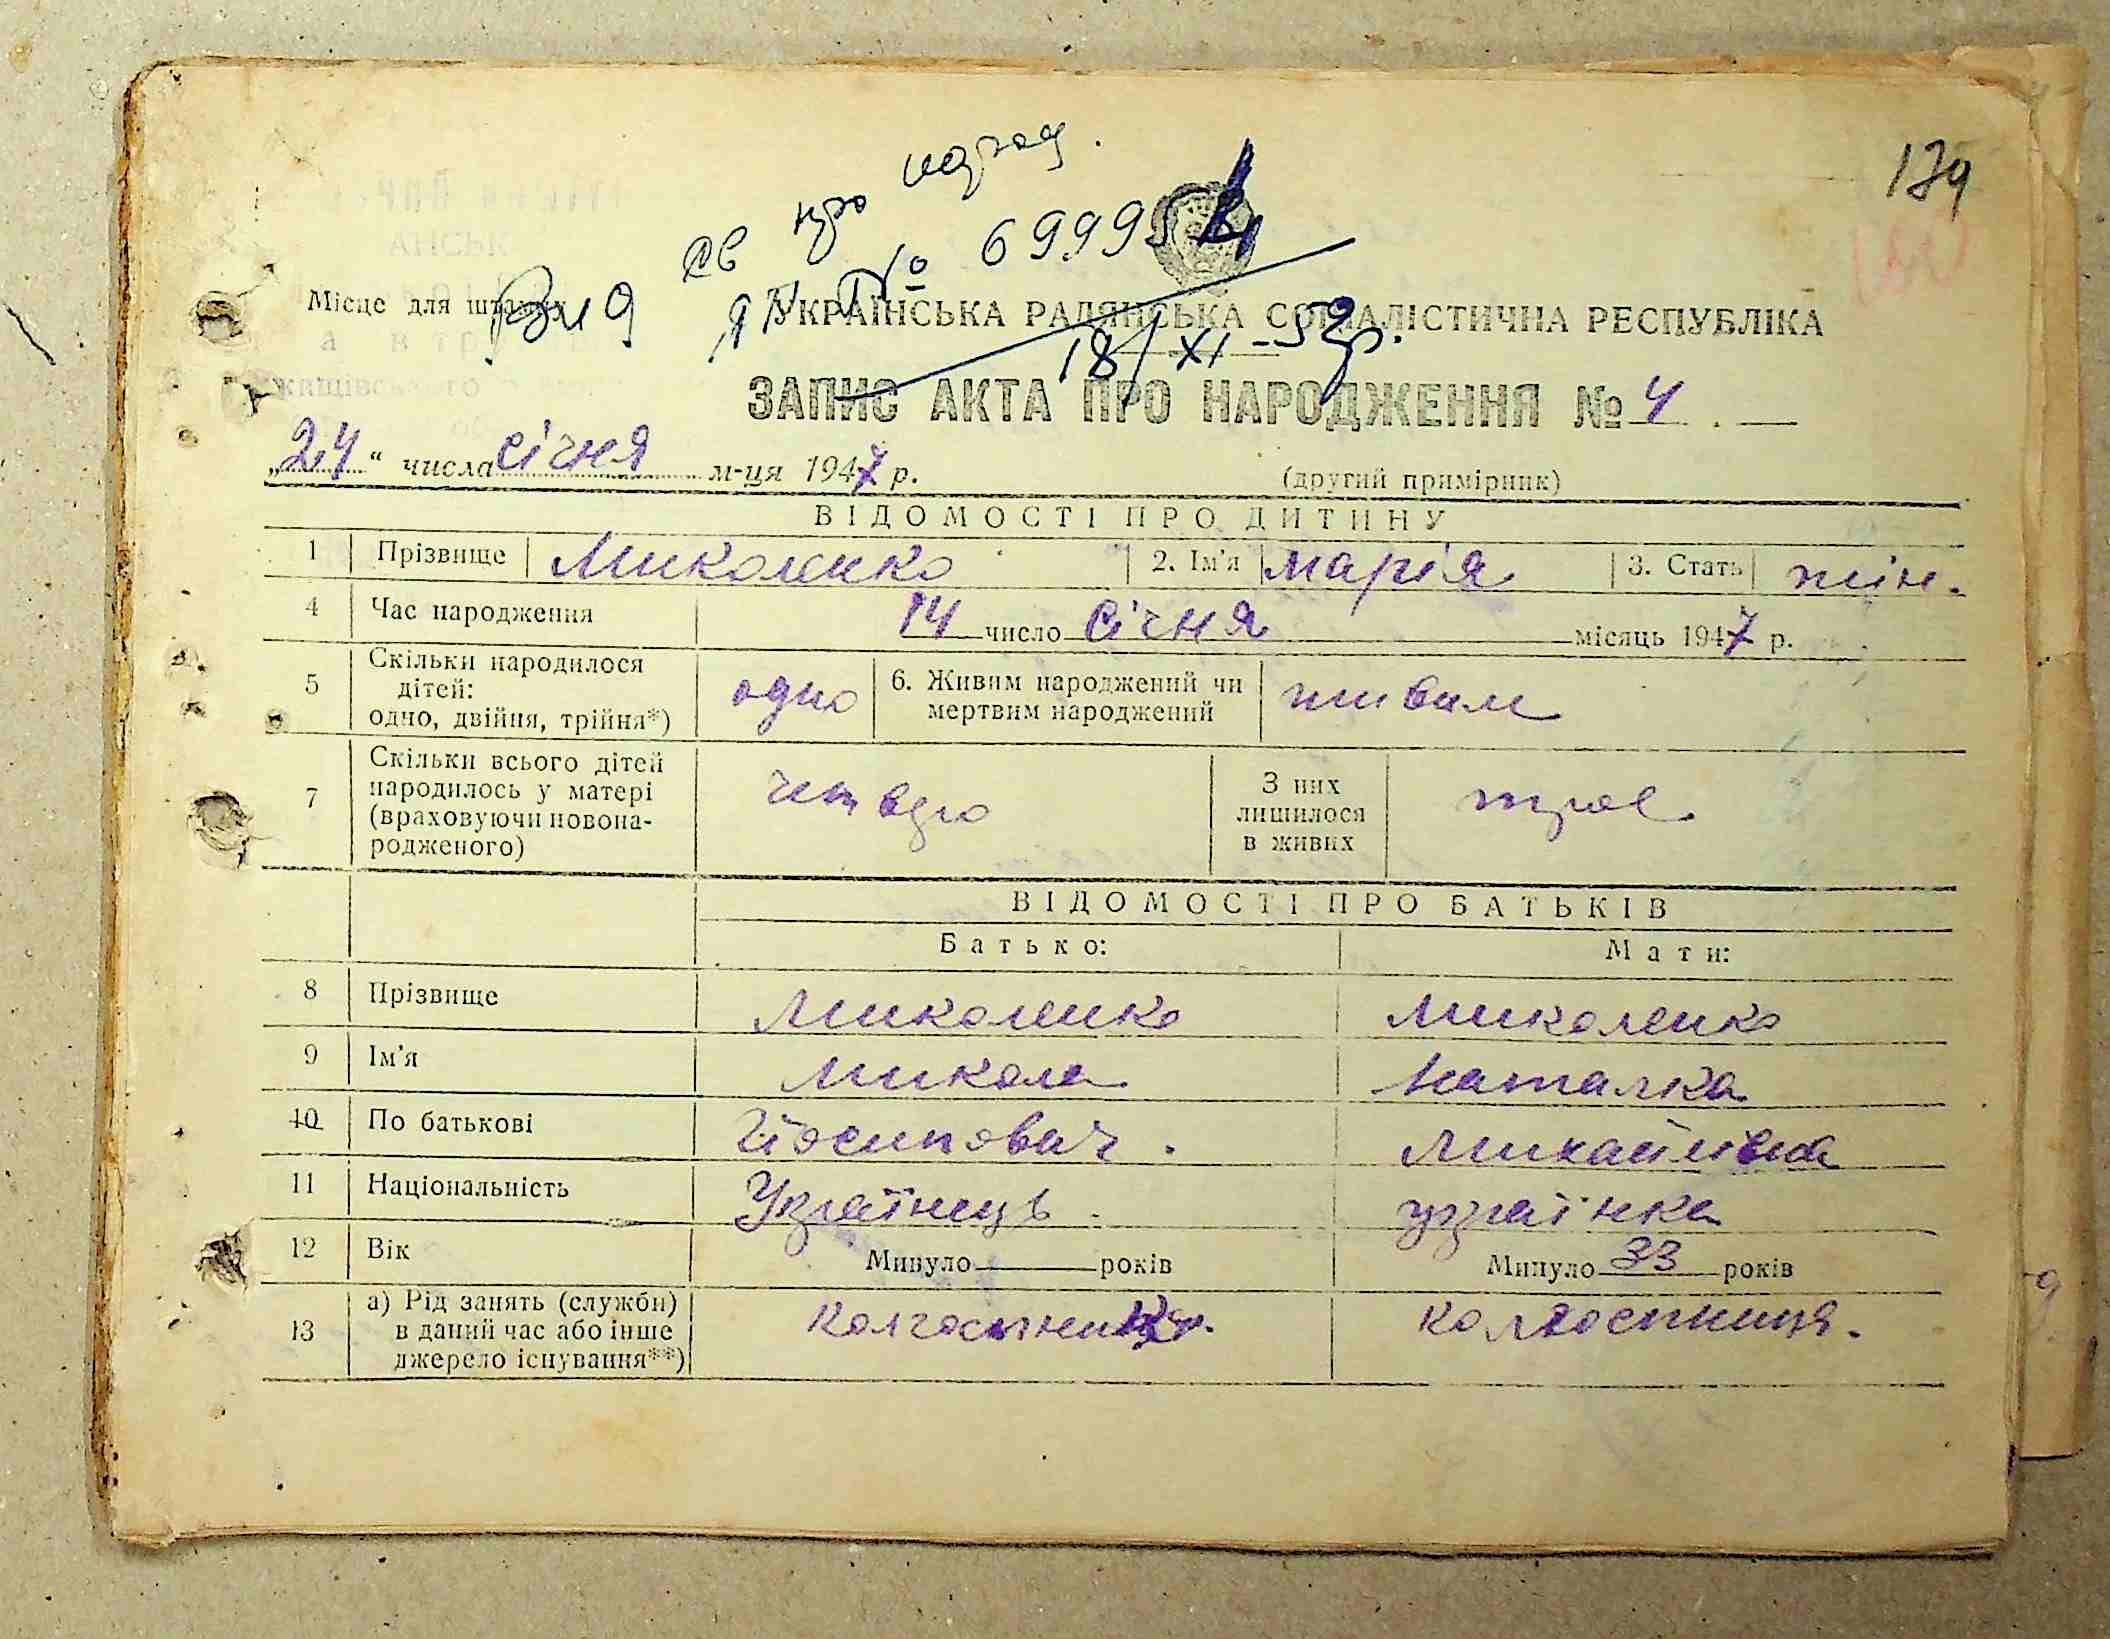 179
св про народ.
Вид ЯП № 69995
18/XI-59р.
Місце для штампу
УКРАЇНСЬКА РАДЯНСЬКА СОЦІАЛІСТИЧНА РЕСПУБЛІКА
ЗАПИС АКТА ПРО НАРОДЖЕННЯ № 4
„24“ числа січня м-ця 1947 р.
(другий примірник)
ВІДОМОСТІ ПРО ДИТИНУ
1 Прізвище Миколенко 2. Ім'я Марія 3. Стать жін.
4 Час народження 14 число Січня місяць 1947 р.
5 Скільки народилося дітей: одно, двійня, трійня*) одно 6. Живим народжений чи мертвим народжений живим
7 Скільки всього дітей народилось у матері (враховуючи новонародженого) четверо З них лишилося в живих троє
ВІДОМОСТІ ПРО БАТЬКІВ
Батько: Мати:
8 Прізвище Миколенко Миколенко
9 Ім'я Микола Наталка
10 По батькові Йосипович. Михайлівна
11 Національність Українець українка
12 Вік Минуло років Минуло 33 років
13 а) Рід занять (служби) в даний час або інше джерело існування**) колгоспник колгоспниця.